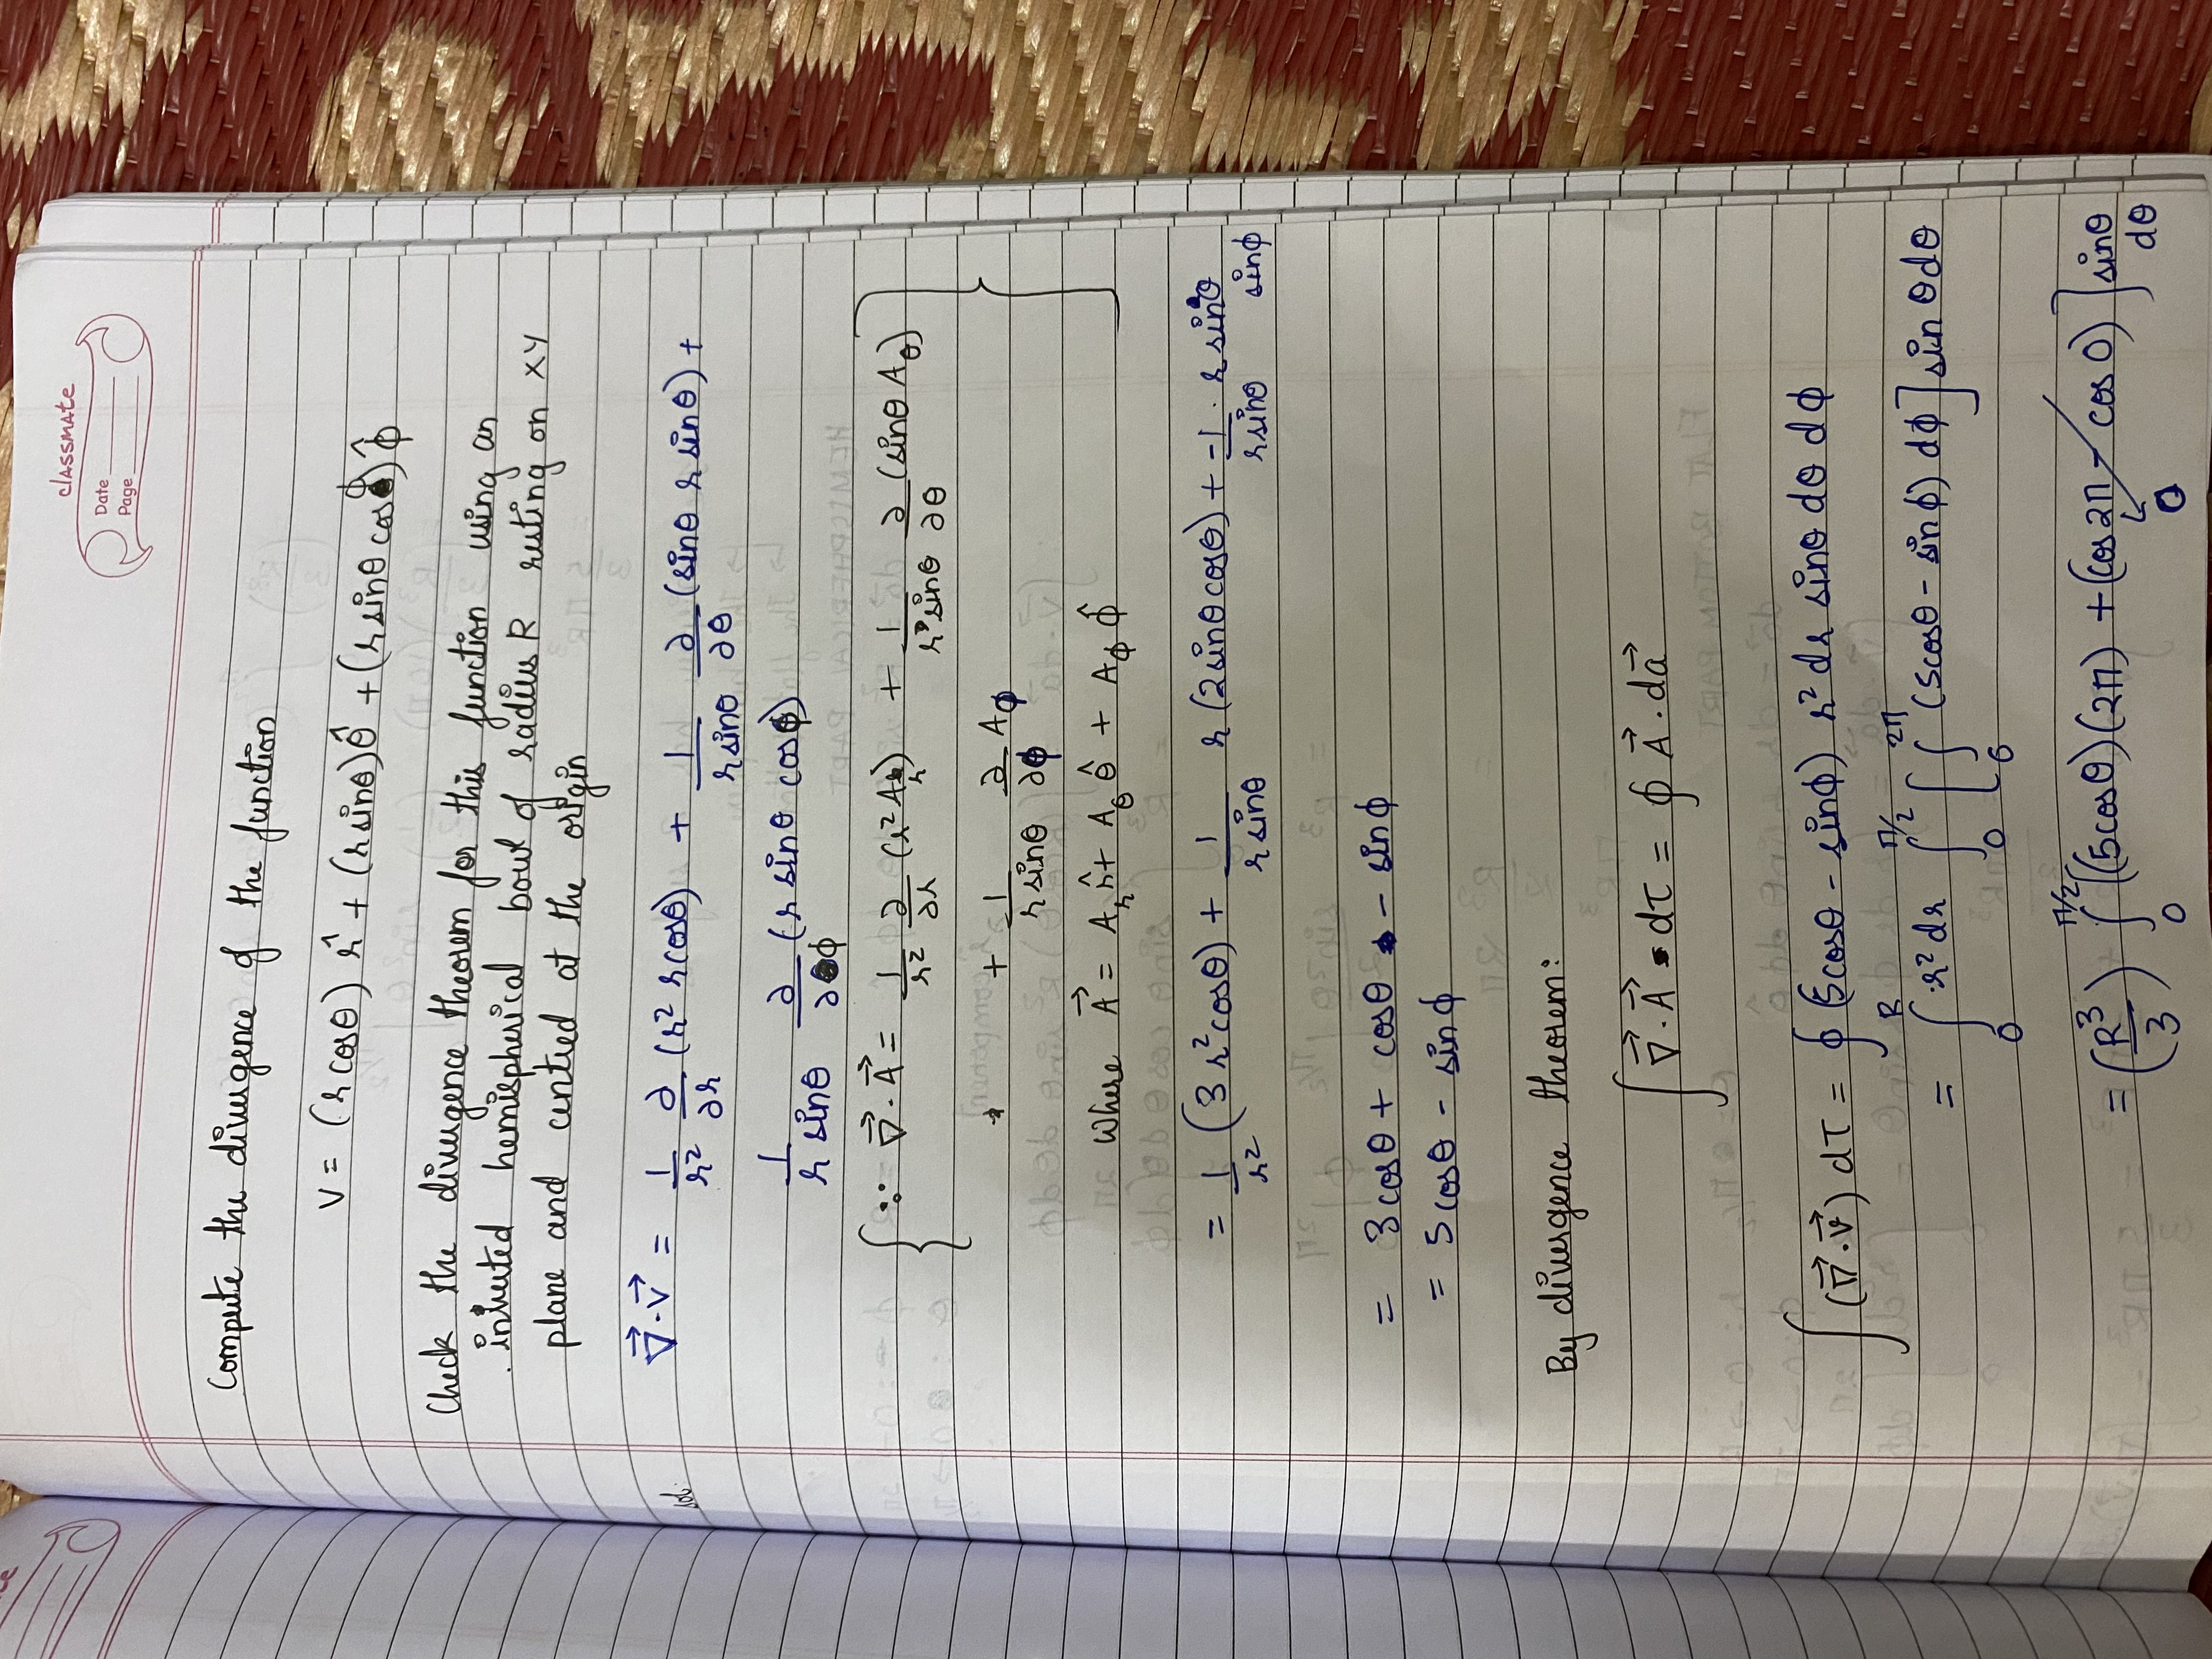 classmate
Date
Page
Compute the divergence of the function
V = (r cosθ) r̂ + (r sinθ) θ̂ + (r sinθ cosϕ) ϕ̂
Check the divergence theorem for this function using an
inverted hemispherical bowl of radius R resting on XY
plane and centred at the origin
sol. ∇⃗·V⃗ = 1/r² ∂/∂r (r² r cosθ) + 1/(r sinθ) ∂/∂θ (sinθ r sinθ) +
1/(r sinθ) ∂/∂ϕ (r sinθ cosϕ)
{ ∵ ∇⃗·A⃗ = 1/r² ∂/∂r (r² A_r) + 1/(r sinθ) ∂/∂θ (sinθ A_θ)
+ 1/(r sinθ) ∂/∂ϕ A_ϕ
Where A⃗ = A_r r̂ + A_θ θ̂ + A_ϕ ϕ̂ }
= 1/r² (3r² cosθ) + 1/(r sinθ) r (2 sinθ cosθ) + -1/(r sinθ) · r sinθ sinϕ
= 3 cosθ + cosθ - sinϕ
= 5 cosθ - sinϕ
By divergence theorem:
∫ ∇⃗·A⃗ dτ = ∮ A⃗·da⃗
∫ (∇⃗·V⃗) dτ = ∮ (5cosθ - sinϕ) r² dr sinθ dθ dϕ
= ∫₀^R r² dr ∫₀^{π/2} [ ∫₀^{2π} (5cosθ - sinϕ) dϕ ] sinθ dθ
= (R³/3) ∫₀^{π/2} [(5cosθ)(2π) + (cos2π - cos0) ] sinθ dθ
0